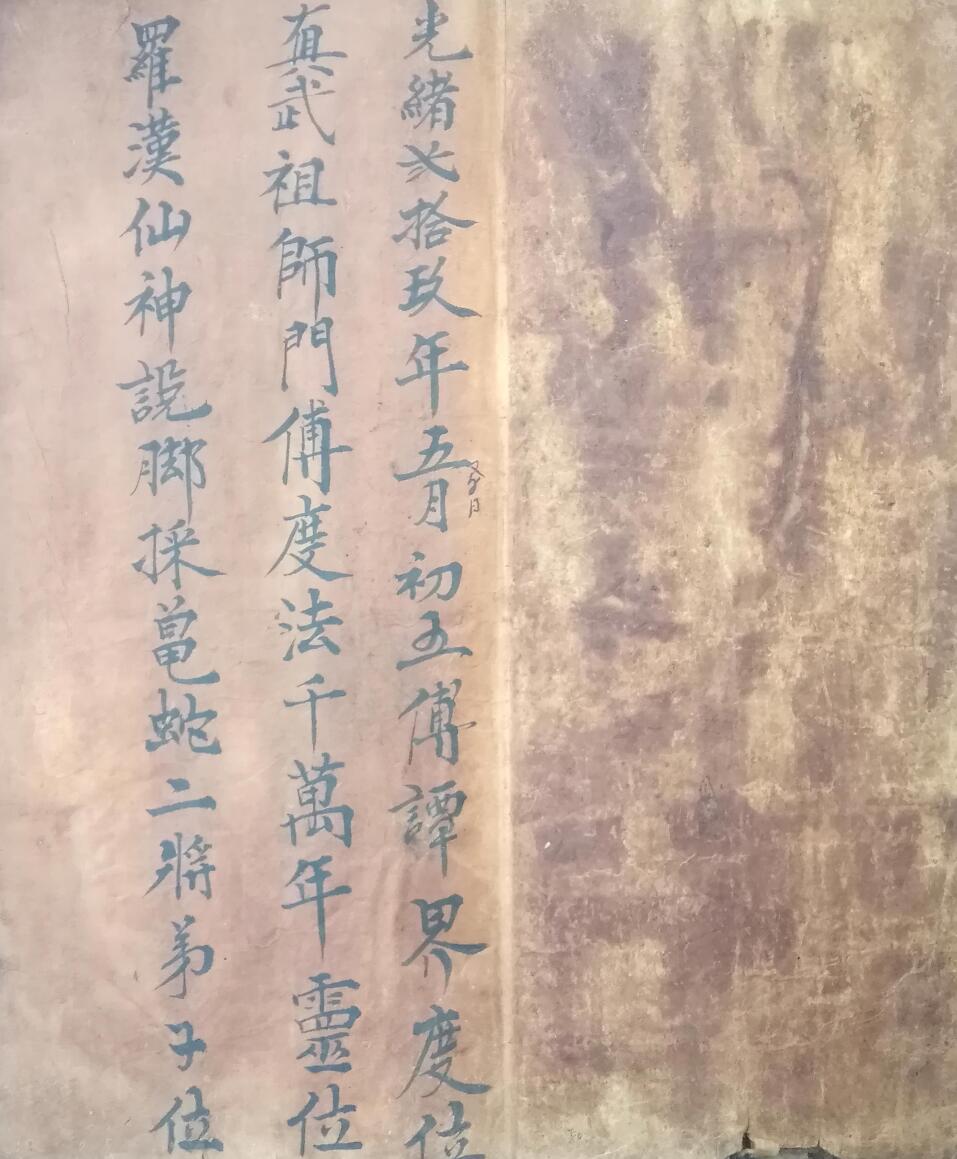 光緒弍拾玖年五月初五傳譚界度位
又五月
真武祖師門傳度法千萬年靈位
羅漢仙神説脚採黽蛇二將弟子位